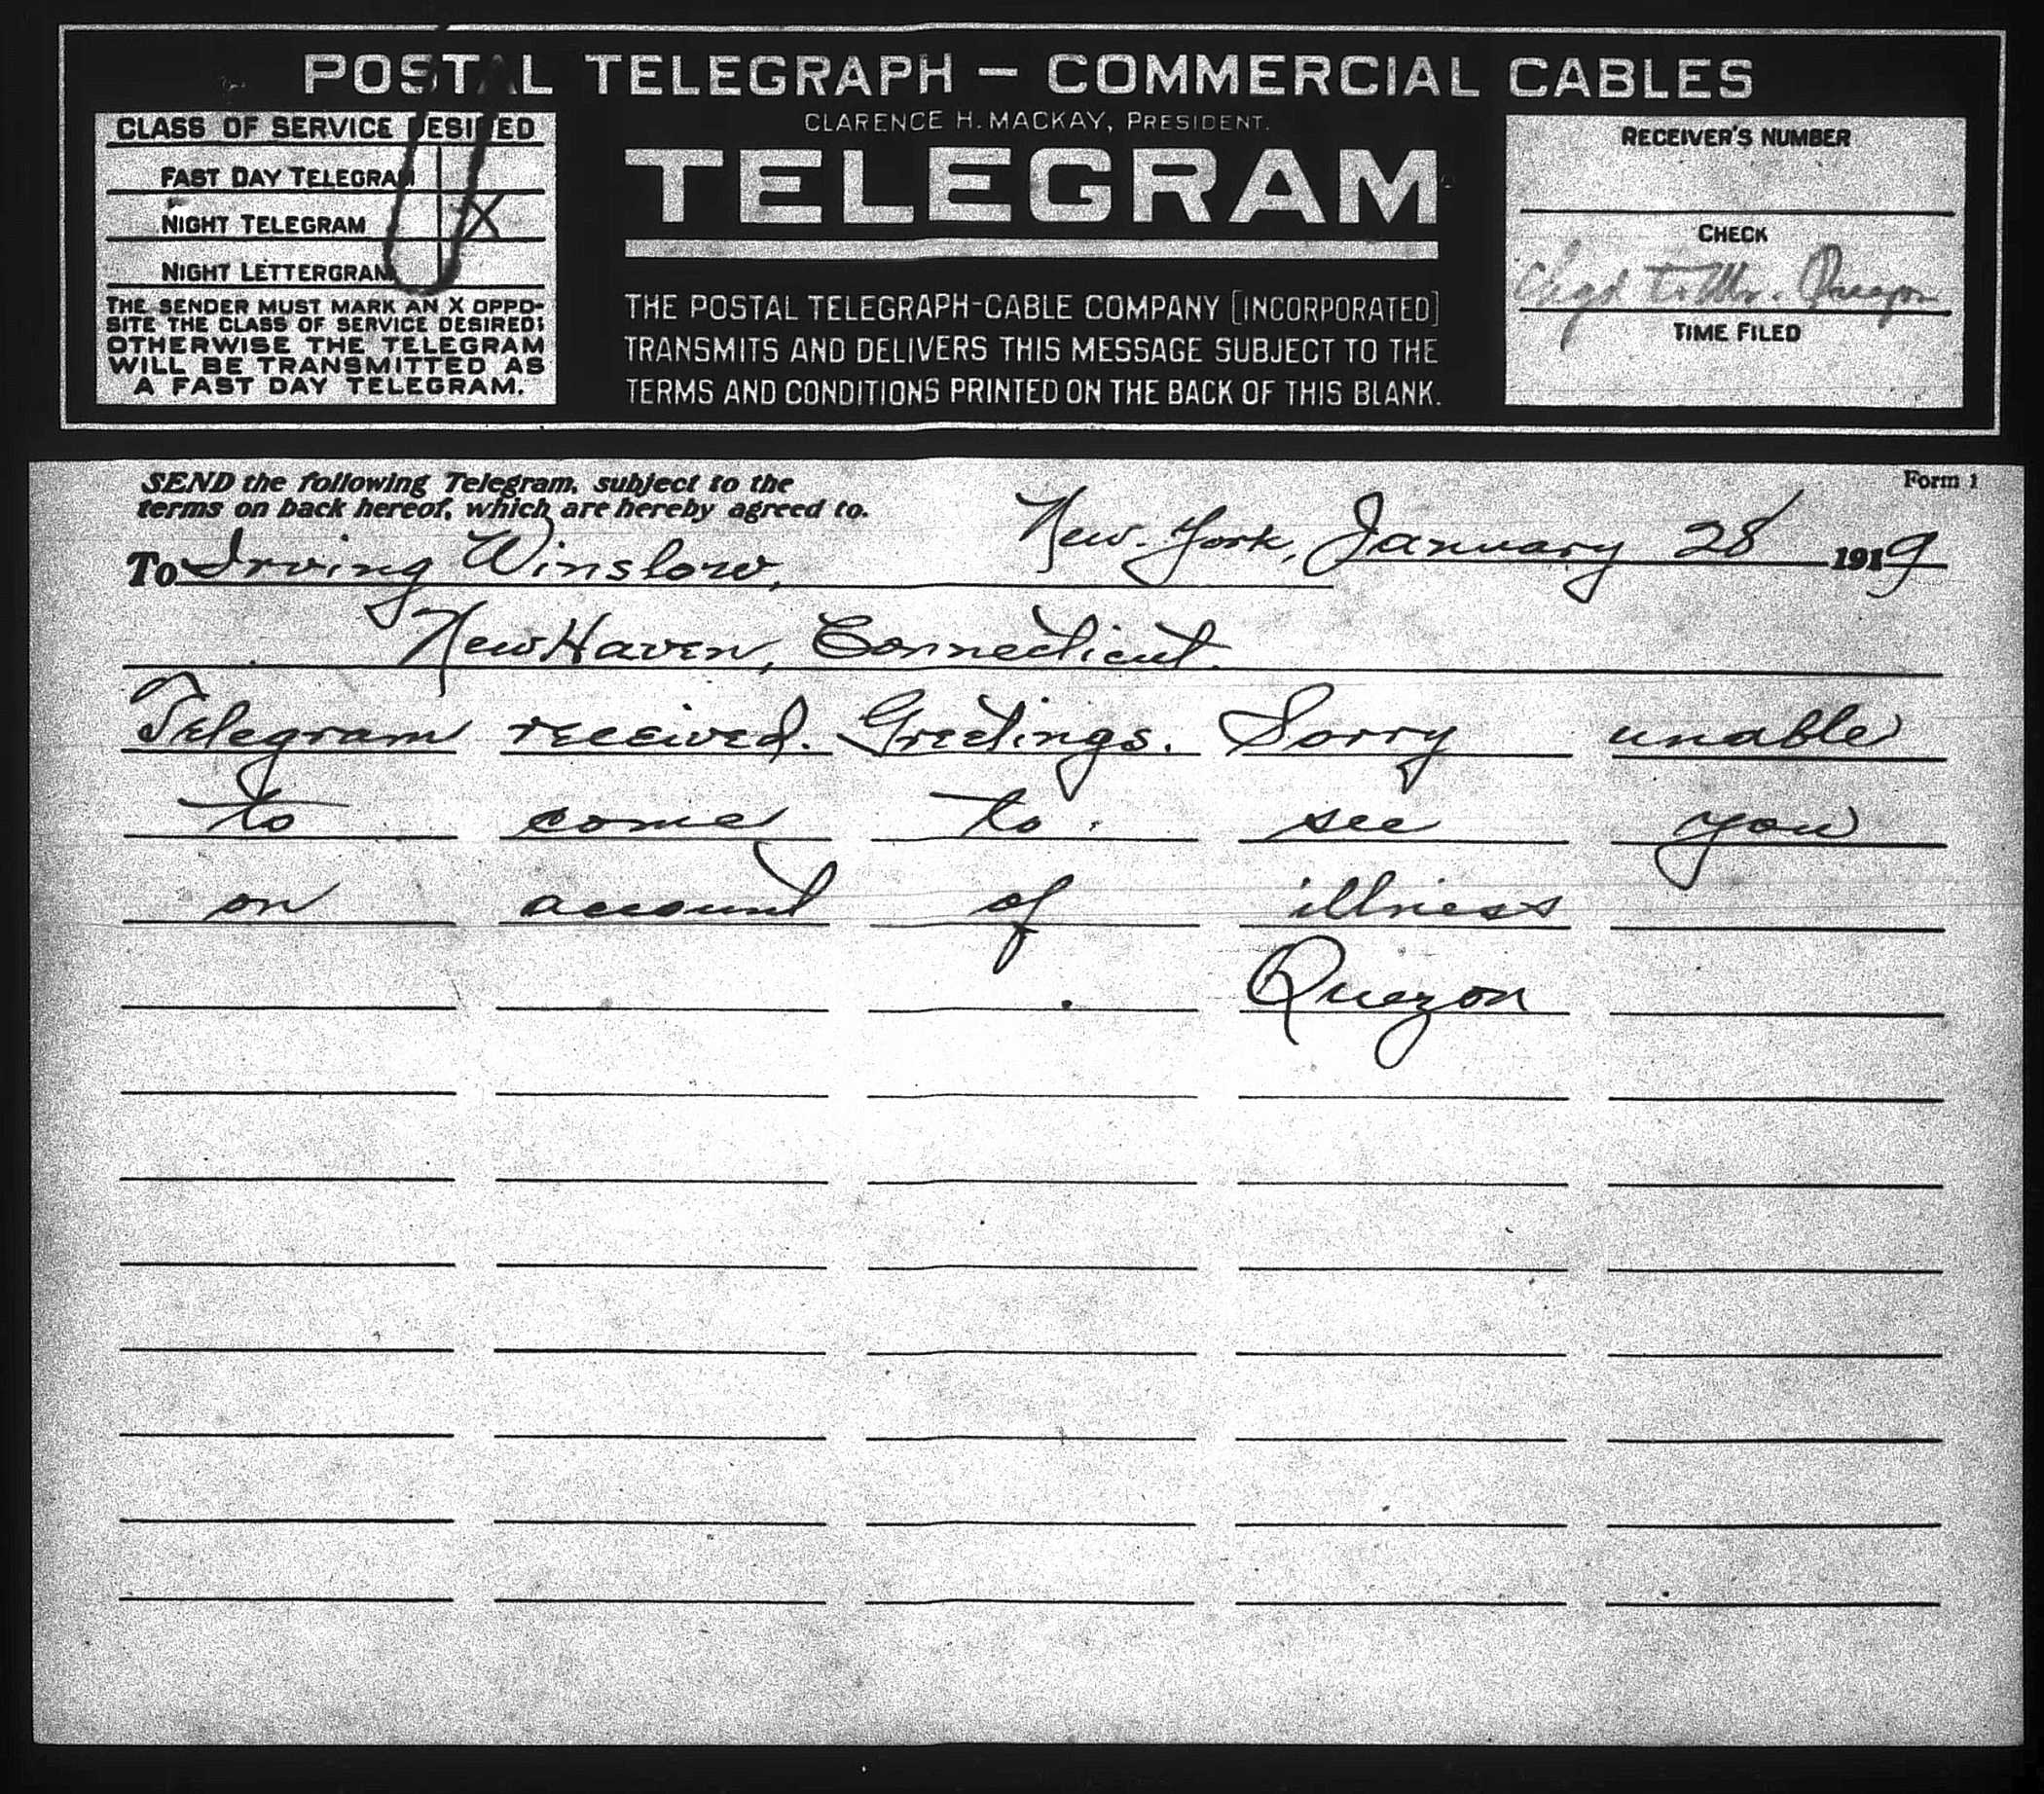 POSTAL TELEGRAPH — COMMERCIAL CABLES
CLARENCE H. MACKAY, PRESIDENT.
TELEGRAM
CLASS OF SERVICE DESIRED
FAST DAY TELEGRAM
NIGHT TELEGRAM X
NIGHT LETTERGRAM
THE SENDER MUST MARK AN X OPPO-
SITE THE CLASS OF SERVICE DESIRED;
OTHERWISE THE TELEGRAM
WILL BE TRANSMITTED AS
A FAST DAY TELEGRAM.
THE POSTAL TELEGRAPH-CABLE COMPANY [INCORPORATED]
TRANSMITS AND DELIVERS THIS MESSAGE SUBJECT TO THE
TERMS AND CONDITIONS PRINTED ON THE BACK OF THIS BLANK.
RECEIVER'S NUMBER
CHECK
Chgd to Mr. Quezon
TIME FILED
SEND the following Telegram, subject to the
terms on back hereof, which are hereby agreed to.
Form 1
New York, January 28 1919
To Irving Winslow,
New Haven, Connecticut.
Telegram received. Greetings. Sorry unable
to come to see you
on account of illness
Quezon